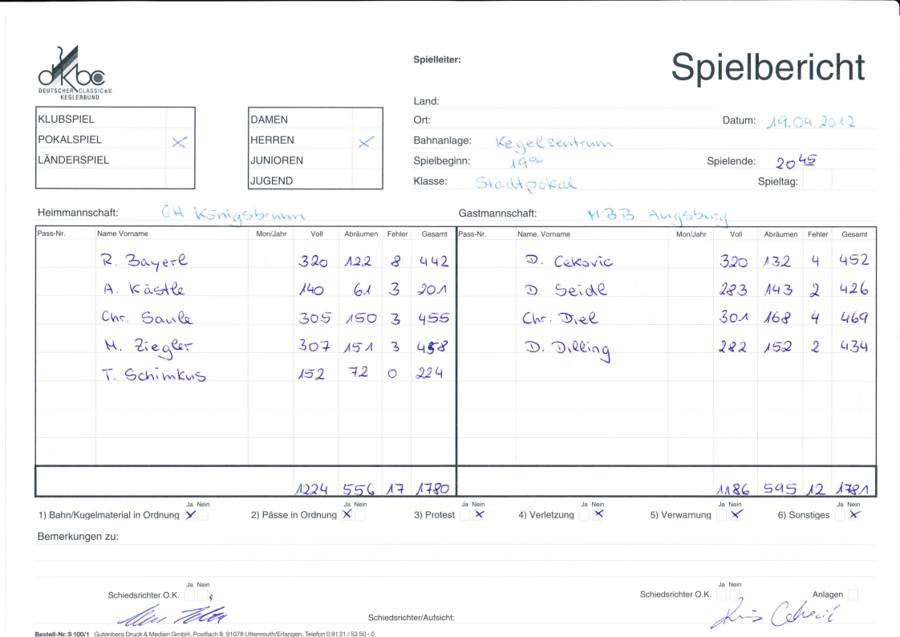 Spielleiter:
Spielbericht
dkbc
DEUTSCHER CLASSIC e.V.
KEGLERBUND
Land:
KLUBSPIEL
DAMEN
Ort:
Datum: 19.04.2012
POKALSPIEL X
HERREN X
Bahnanlage: Kegelzentrum
LÄNDERSPIEL
JUNIOREN
Spielbeginn: 19⁰⁰
Spielende: 20⁴⁵
JUGEND
Klasse: Stadtpokal
Spieltag:
Heimmannschaft: GH Königsbrunn
Gastmannschaft: MBB Augsburg
Pass-Nr. Name Vorname Mon/Jahr Voll Abräumen Fehler Gesamt Pass-Nr. Name, Vorname Mon/Jahr Voll Abräumen Fehler Gesamt
R. Bayerl 320 122 8 442 D. Cekovic 320 132 4 452
A. Kästle 140 61 3 201 D. Seidl 283 143 2 426
Chr. Saule 305 150 3 455 Chr. Diel 301 168 4 469
M. Ziegler 307 151 3 458 D. Dilling 282 152 2 434
T. Schimkus 152 72 0 224
1224 556 17 1780 1186 595 12 1781
Ja Nein Ja Nein Ja Nein Ja Nein Ja Nein Ja Nein
1) Bahn/Kugelmaterial in Ordnung X 2) Pässe in Ordnung X 3) Protest X 4) Verletzung X 5) Verwarnung X 6) Sonstiges X
Bemerkungen zu:
Ja Nein Ja Nein
Schiedsrichter O.K. Schiedsrichter O.K. Anlagen
Schiedsrichter/Aufsicht:
Bestell-Nr. S 100/1 Gutenberg Druck & Medien GmbH, Postfach 8, 91078 Uttenreuth/Erlangen, Telefon 0 91 31 / 53 50 - 0